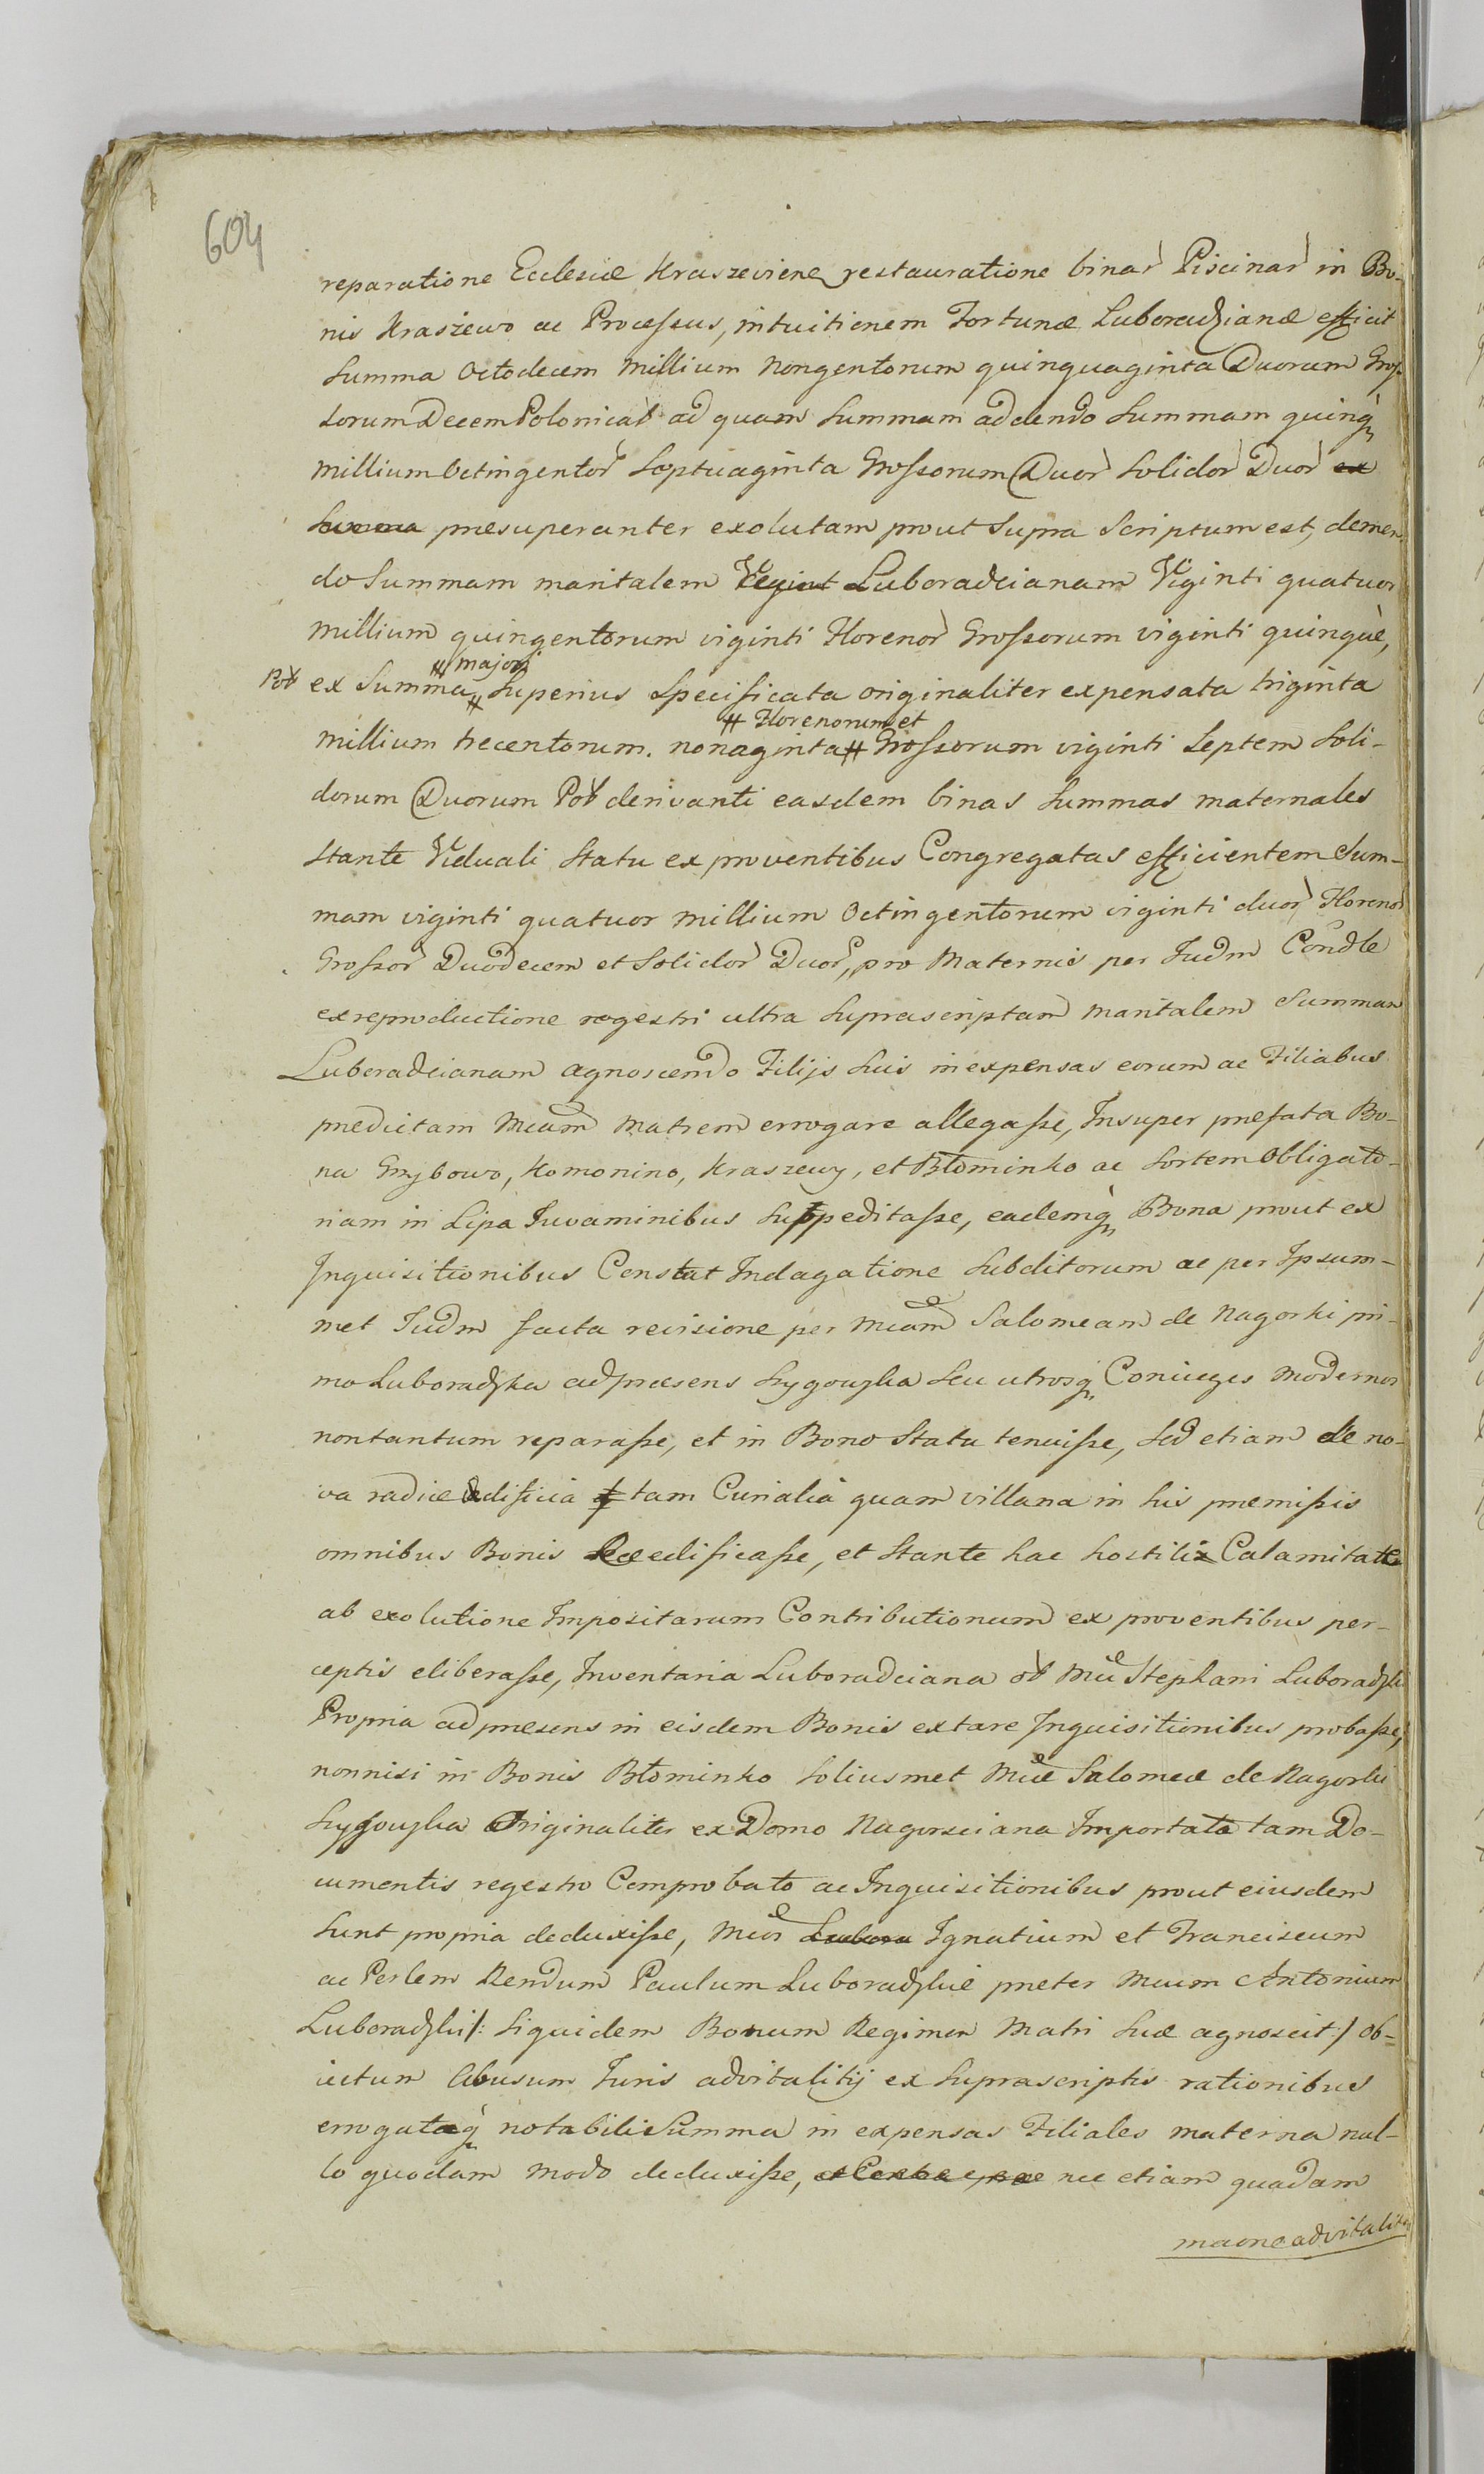 604
reparatione Ecclesiæ Kraszeviens restauratione binar Piscinar in Bo-
nis Kraszewo ac Processus, intuitionem Fortunæ Luboradzianæ efficit
Summa Octodecem Millium Nongentorum quinquaginta Duorum Gros-
sorum Decem Polonical ad quam Summam addendo Summam quinq
millium Octingentor Septuaginta Grossorum Duor Solidor Duor ex
Summa presuperanter exolutam prout Supra Scriptum est, demen-
do Summam maritalem Vegint Luboradcianam Viginti quatuor
millium quingentorum viginti Florenor Grossorum viginti quinque,
Pol ex Summa # majori # Superius Specificata originaliter expensata triginta
millium trecentorum. nonaginta # Florenorum et # Grossorum viginti Septem Soli-
dorum Duorum Pol derivanti easdem binas Summas maternales
Stante Viduali Statu ex proventibus Congregatas efficientem Sum-
mam viginti quatuor millium Octingentorum viginti duor Floreno
Grossor Duodecem et Solidor Duor, pro Maternis per Iudm Condle
ex reproductione regestri ultra Suprascriptam maritalem Summam
Luboradcianam agnoscendo Filijs Suis in expensas eorum ac Filiabus
predictam Mcam Matrem errogare allegasse, Insuper prefata Bo-
na Grzybowo, Komonino, Kraszewy, et Błominko ac Sortem Obligato-
riam in Lipa Iuvaminibus Suppeditasse, eademq Bona prout ex
Inquisitionibus Constat Indagatione Subditorum ac per Ipsum-
met Iudm facta revisione per Mcam Salomeam de Nagorki pri-
mo Luboradzka ad præsens Szygowska Seu utrosq Coniuges modernos
non tantum reparasse, et in Bono Statu tenuisse, Sed etiam de no-
va radice Ædificia tam Curialia quam villana in his premissis
omnibus Bonis Reædificasse, et Stante hac hostili Calamitate
ab exolutione Impositarum Contributionum ex proventibus per-
ceptis eliberasse, Inventaria Luboradciana ol Mci Stephani Luboradzki
Propria ad presens in eisdem Bonis extare Inquisitionibus probasse,
nonnisi in Bonis Błominko Soliusmet Mcæ Salomeæ de Nagorki
Szygowska Originaliter ex Domo Nagorsciana Importata tam Do-
cumentis regestro Comprobato ac Inquisitionibus prout eiusdem
Sunt propria deduxisse, Mcos Lubora Ignatium et Franciscum
ac Perlem Rendum Paulum Luboradzkie preter Mcum Antonium
Luboradzki /: Siquidem Bonum Regimen Matri Suæ agnoscit :/ ob=
iectum Abusum Iuris advitalitij ex Suprascriptis rationibus
errogataq notabili Summa in expensas Filiales materna nul-
lo quodam modo deduxisse, nec etiam quadam